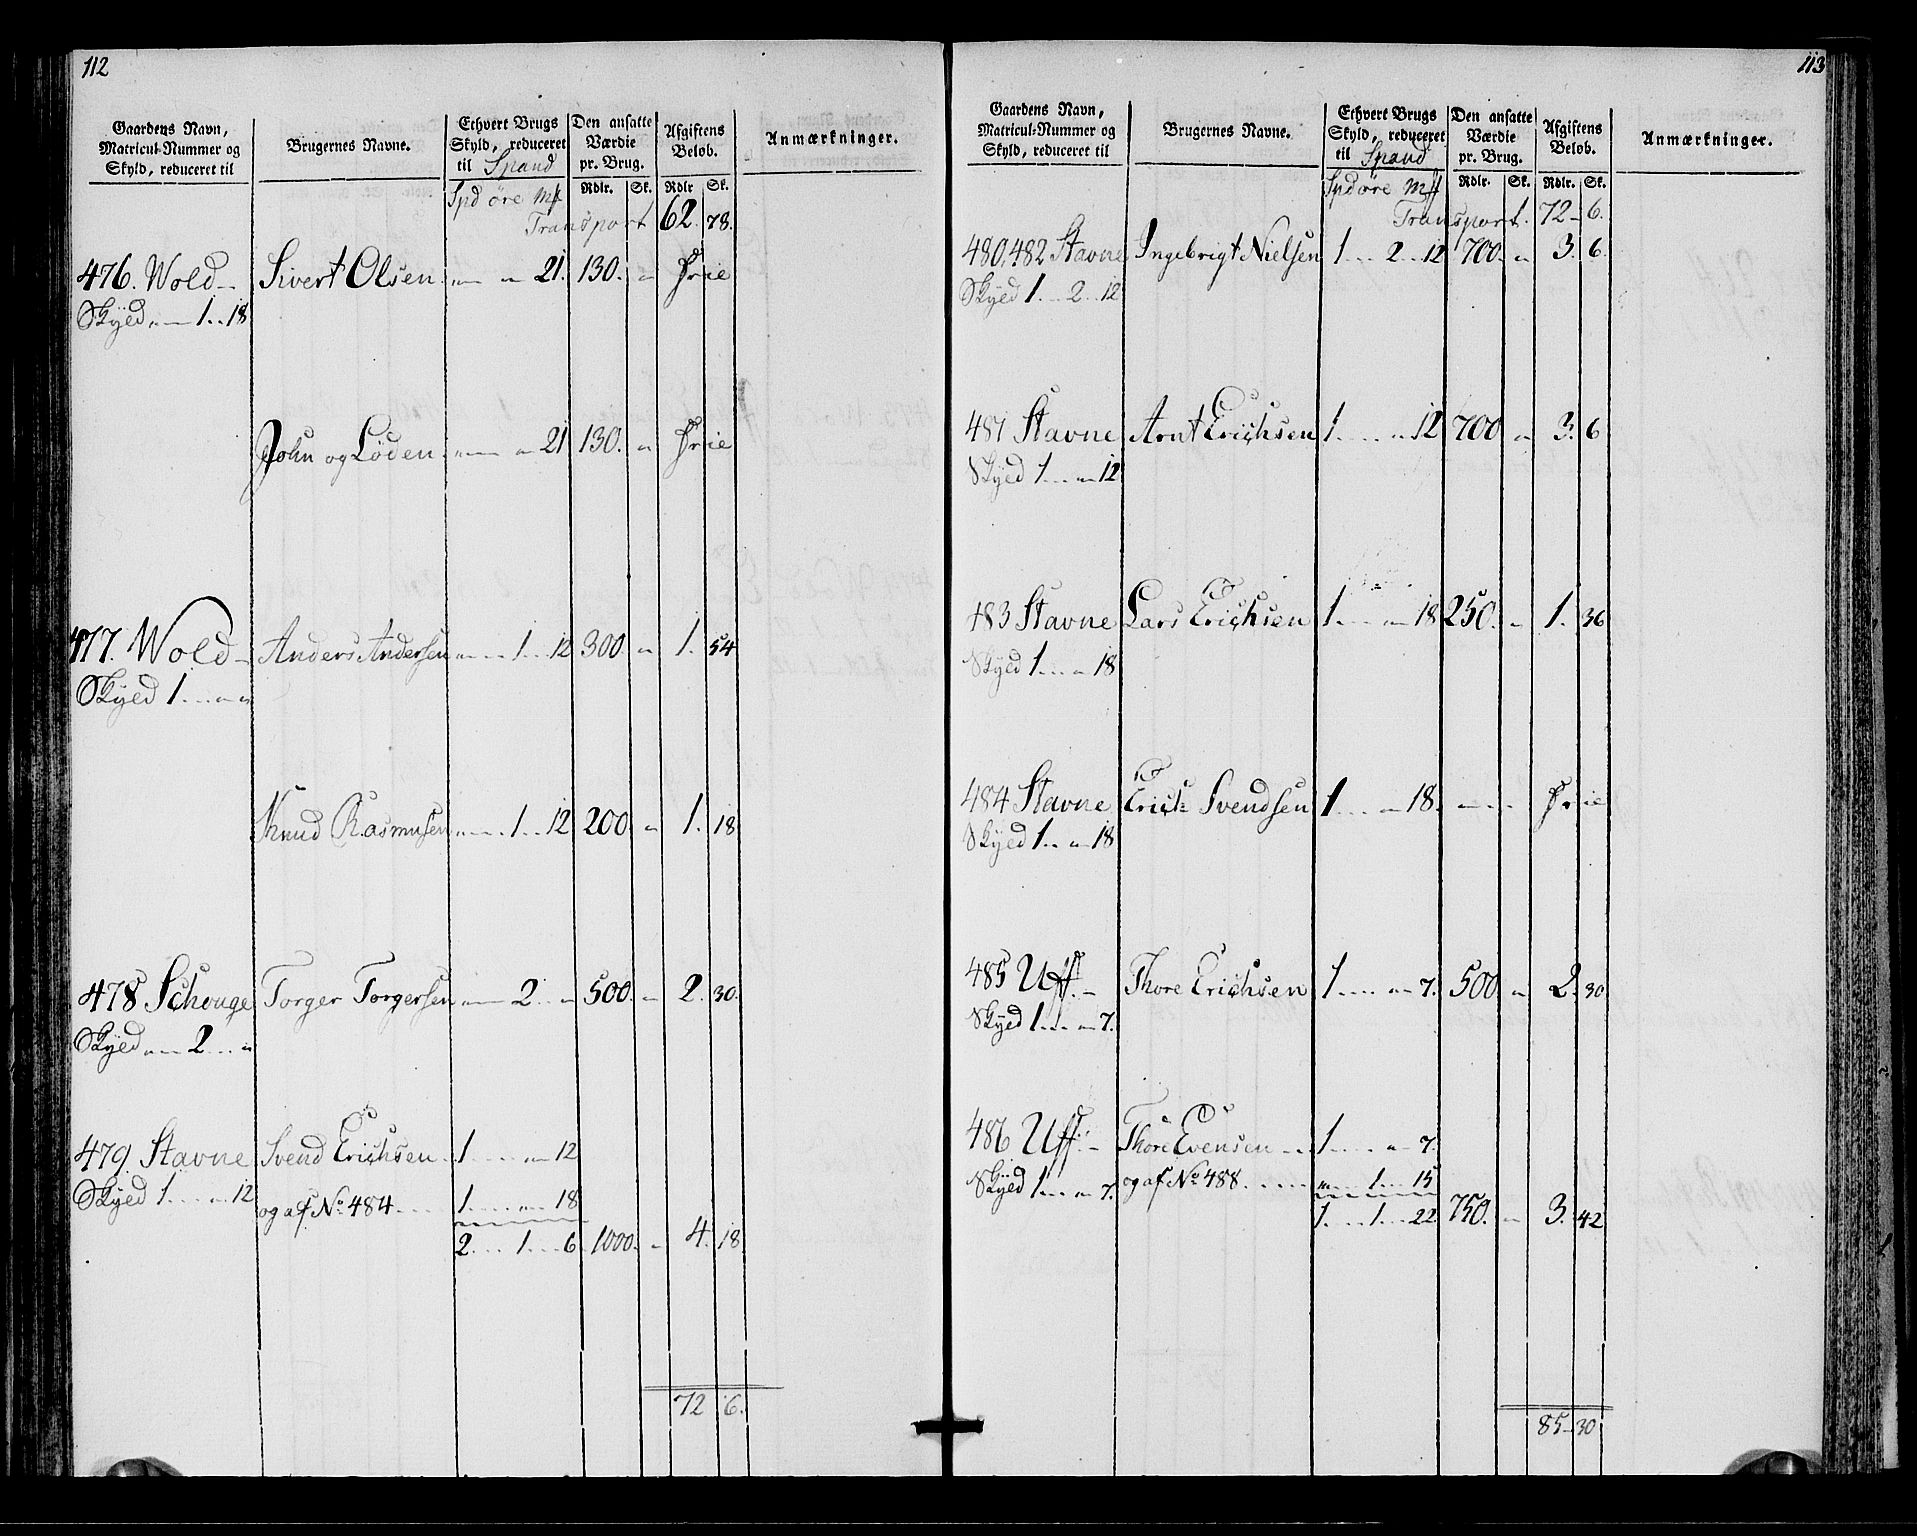 112
Gaardens Navn, Matricul-Nummer og Skyld, reduceret til
Brugernes Navne.
Ethvert Brugs Skyld, reduceret til Spand
Den ansatte Værdie pr. Brug.
Afgiftens Beløb.
Anmærkninger.
Spd öre Mß Rdlr. Sk. Rdlr Sk.
Transport 62. 78.
476. Wold Sivert Olsen 21. 130. Frie
Skyld 1 18
John og Löden 21 130. Frie
477. Wold Anders Andersen 1 12 300 1. 54
Skyld 1
Knud Rasmusen 1 12 200. 1. 18
478 Schouge Torger Torgersen 2 500. 2. 30.
Skyld 2
479. Stavne Svend Erichsen 1 12
Skyld 1 12 og af No. 484 1 18
2 1 6 1000. 4. 18
72 6.
113
Gaardens Navn, Matricul-Nummer og Skyld, reduceret til
Brugernes Navne.
Ethvert Brugs Skyld, reduceret til Spand
Den ansatte Værdie pr. Brug.
Afgiftens Beløb.
Anmærkninger.
Spd öre Mß Rdlr. Sk. Rdlr. Sk.
Transport. 72 6.
480, 482 Stavne Ingebrigt Nielsen 1 2 12 700. 3. 6
Skyld 1 2 12
481 Stavne Arnt Erichsen 1 12 700 3. 6
Skyld 1 12
483 Stavne Lars Erichsen 1 18 250. 1. 36
Skyld 1 18
484 Stavne Erich Svendsen 1 18. Frie
Skyld 1 18
485 Uff. Thore Erichsen 1 7. 500 2. 30
Skyld 1 7.
486 Uff. Thore Evensen 1 7.
Skyld 1 7. og af No. 488. 1 15
1 1 22 750. 3. 42
85 30